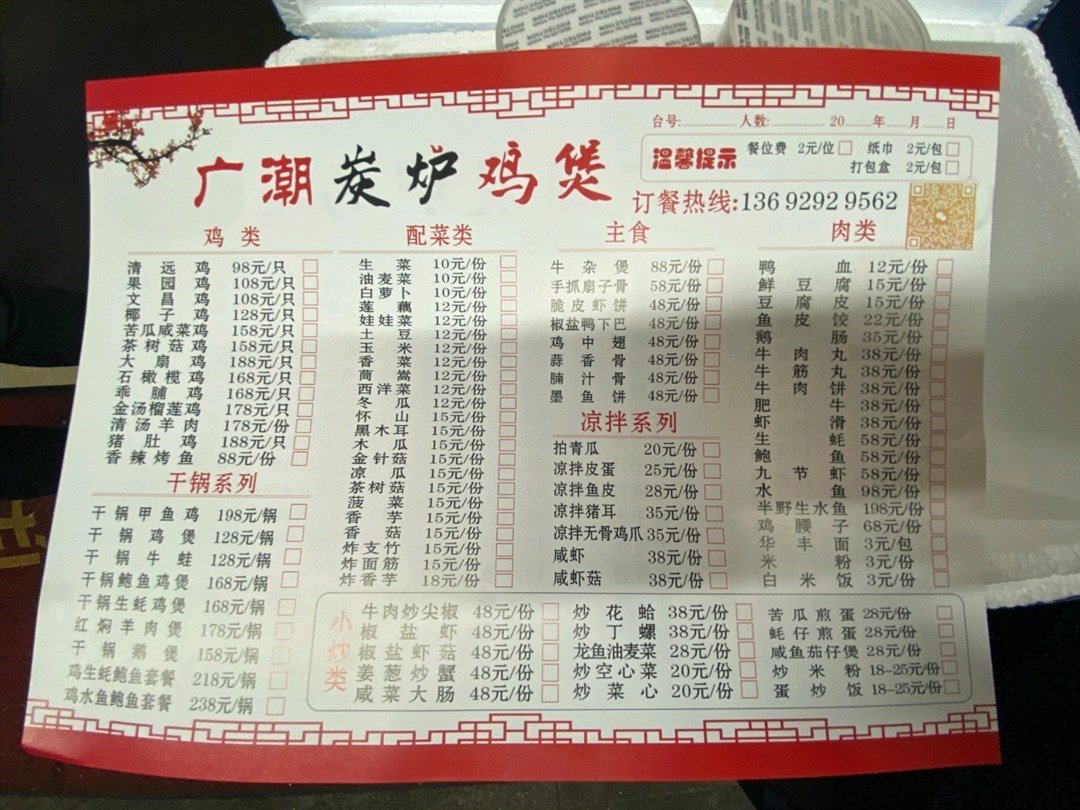 台号: 人数: 20 年 月 日
广潮炭炉鸡煲
温馨提示 餐位费 2元/位 纸巾 2元/包
打包盒 2元/包
订餐热线:136 9292 9562
鸡类
清远鸡 98元/只
果园鸡 108元/只
文昌鸡 108元/只
椰子鸡 128元/只
苦瓜咸菜鸡 158元/只
茶树菇鸡 158元/只
大扇鸡 188元/只
石橄榄鸡 168元/只
乖脯鸡 168元/只
金汤榴莲鸡 178元/只
清汤羊肉 178元/份
猪肚鸡 188元/只
香辣烤鱼 88元/份
干锅系列
干锅甲鱼鸡 198元/锅
干锅鸡煲 128元/锅
干锅牛蛙 128元/锅
干锅鲍鱼鸡煲 168元/锅
干锅生蚝鸡煲 168元/锅
红焖羊肉煲 178元/锅
干锅鹅煲 158元/锅
鸡生蚝鲍鱼套餐 218元/锅
鸡水鱼鲍鱼套餐 238元/锅
配菜类
生菜 10元/份
油麦菜 10元/份
白萝卜 10元/份
莲藕 12元/份
娃娃菜 12元/份
土豆 12元/份
玉米 12元/份
香菜 12元/份
茼蒿 12元/份
西洋菜 12元/份
冬瓜 12元/份
怀山 15元/份
黑木耳 15元/份
木瓜 15元/份
金针菇 15元/份
凉瓜 15元/份
茶树菇 15元/份
菠菜 15元/份
香芋 15元/份
香菇 15元/份
炸支竹 15元/份
炸面筋 15元/份
炸香芋 18元/份
主食
牛杂煲 88元/份
手抓扇子骨 58元/份
脆皮虾饼 48元/份
椒盐鸭下巴 48元/份
鸡中翅 48元/份
蒜香骨 48元/份
腩汁骨 48元/份
墨鱼饼 48元/份
凉拌系列
拍青瓜 20元/份
凉拌皮蛋 25元/份
凉拌鱼皮 28元/份
凉拌猪耳 35元/份
凉拌无骨鸡爪 35元/份
咸虾 38元/份
咸虾菇 38元/份
肉类
鸭血 12元/份
鲜豆腐 15元/份
豆腐皮 15元/份
鱼皮饺 22元/份
鹅肠 35元/份
牛肉丸 38元/份
牛筋丸 38元/份
牛肉饼 38元/份
肥牛 38元/份
虾滑 38元/份
生蚝 58元/份
鲍鱼 58元/份
九节虾 58元/份
水鱼 98元/份
半野生水鱼 198元/份
鸡腰子 68元/份
华丰面 3元/包
米粉 3元/份
白米饭 3元/份
小炒类
牛肉炒尖椒 48元/份
椒盐虾 48元/份
椒盐虾菇 48元/份
姜葱炒蟹 48元/份
咸菜大肠 48元/份
炒花蛤 38元/份
炒丁螺 38元/份
龙鱼油麦菜 28元/份
炒空心菜 20元/份
炒菜心 20元/份
苦瓜煎蛋 28元/份
蚝仔煎蛋 28元/份
咸鱼茄仔煲 28元/份
炒米粉 18-25元/份
蛋炒饭 18-25元/份